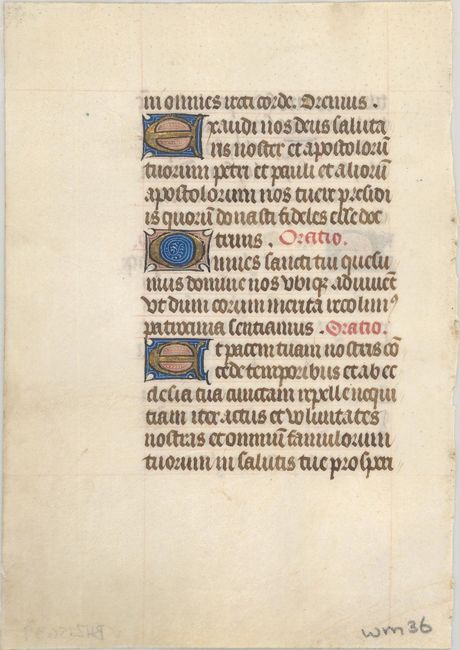 in omnes recti corde. Oremus.
Exaudi nos deus saluta
ris noster et apostolorū
tuorum petri et pauli et aliorū
apostolorum nos tuere presidi
is quorū donasti fideles esse doc
trinis. Oratio.
Omnes sancti tui quesu
mus domine nos vbiqꝫ adiuuēt
vt dum eorum merita recolimꝰ
patrocinia sentiamus. Oratio.
Et pacem tuam nostris cō
cede temporibus et ab ec
clesia tua cunctam repelle nequi
tiam iter actus et voluntates
nostras et omniū famulorum
tuorum in salutis tue prosperi
wm36